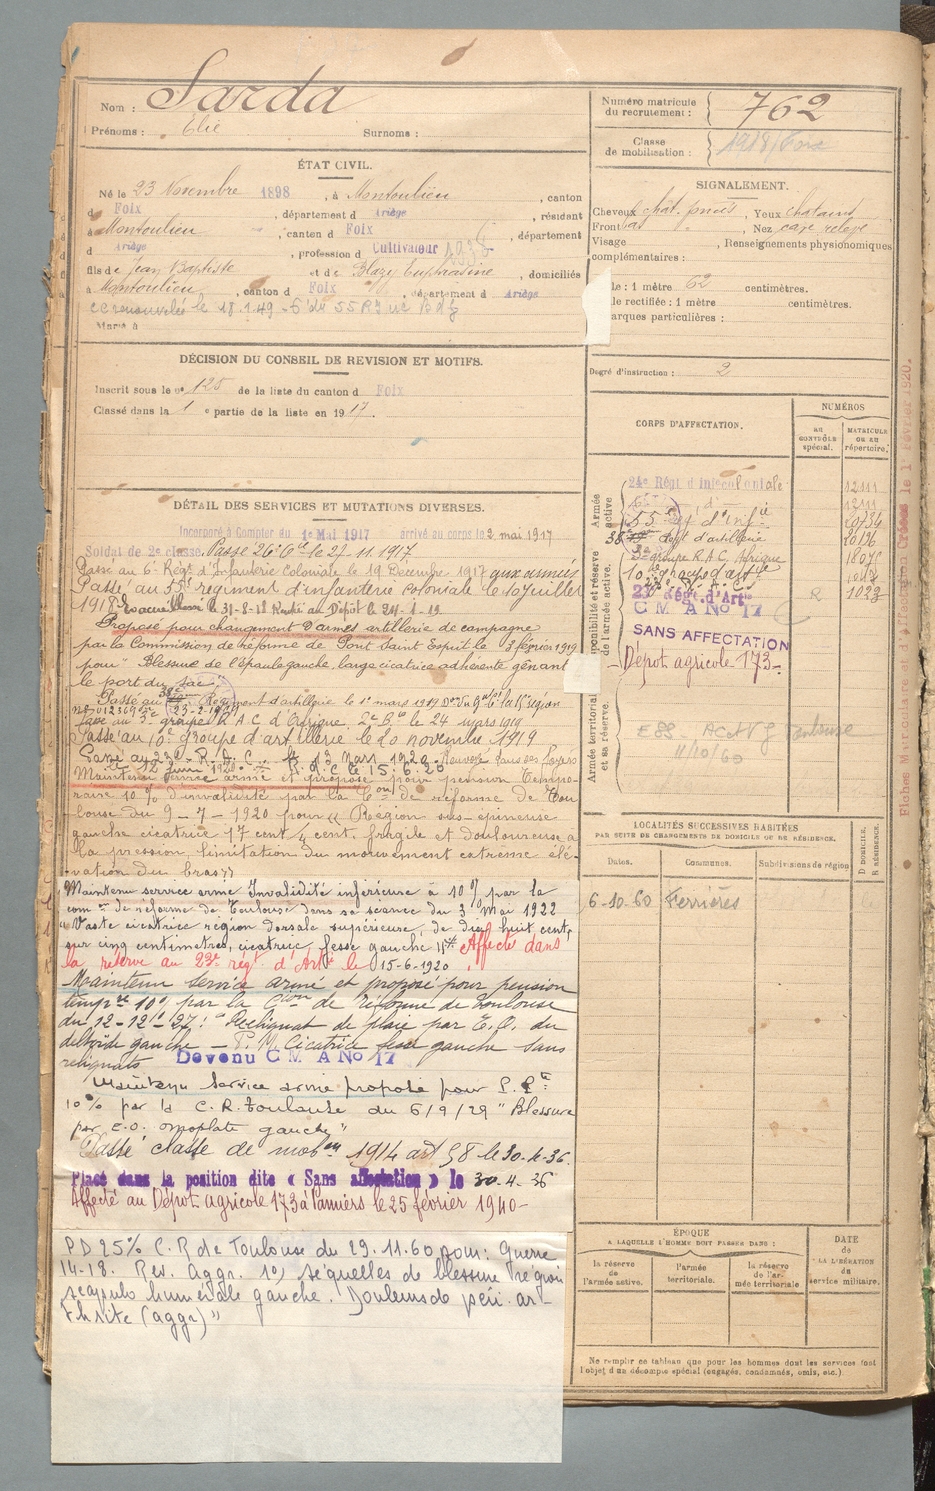 Nom : Sarda
Prénoms : Elie Surnoms :
ÉTAT CIVIL.
Né le 23 Novembre 1898, à Montoulieu, canton
d Foix, département d Ariège, résidant
à Montoulieu, canton d Foix, département
d Ariège, profession d Cultivateur
fils de Jean Baptiste et de Blazy Euphrasine, domiciliés
à Montoulieu, canton d Foix, département d Ariège
renouvelée le 18.1.49
Marié à
DÉCISION DU CONSEIL DE REVISION ET MOTIFS.
Inscrit sous le no 125 de la liste du canton d Foix
Classé dans la 1 e partie de la liste en 1917.
DÉTAIL DES SERVICES ET MUTATIONS DIVERSES.
Incorporé à Compter du 1er Mai 1917 arrivé au corps le 2 mai 1917
Soldat de 2e classe. Passé 26e Cie le 27.11.1917
Passé au 6e Régt d'Infanterie Coloniale le 19 Décembre 1917 aux armées
Passé au 55e régiment d'infanterie coloniale le 10 Juillet
1918. le 31-8-18 Rentré au Dépôt le 24-1-19
Proposé pour changement d'armes artillerie de campagne
par la Commission de réforme de Pont Saint Esprit le 3 février 1919
pour "Blessure de l'épaule gauche, large cicatrice adhérente gênant
le port du sac"
Passé au 38e Régiment d'artillerie le 1er mars 1919
No 012369 23-2-1919
Passé au 3e groupe R.A.C. d'Afrique 2e Bie le 24 mars 1919
Passé au 10e groupe d'artillerie le 20 novembre 1919
Passé au 22e R.A.C. le 13 Mars 1920. Renvoyé dans ses foyers
le 12 Juin 1920. R.D.C le 15.6.20
Maintenu service armé et proposé pour pension tempo-
raire 10% d'invalidité par la Con de réforme de Tou
louse du 9-7-1920 pour "Région sus-épineuse
gauche cicatrice 17 cent / 4 cent. fragile et douloureuse à
la pression limitation du mouvement extrême élé-
vation du bras"
Maintenu service armé Invalidité inférieure à 10% par la
com on de réforme de Toulouse dans sa séance du 3 Mai 1922
"Vaste cicatrice région dorsale supérieure, de dix huit cent,
sur cinq centimètres, cicatrice fesse gauche" Affecté dans
la réserve au 23e régt d'Artie le 15-6-1920
Maintenu service armé et proposé pour pension
tempre 10% par la Cion de réforme de Toulouse
du 12-12-27: "Reliquat de plaie par E.O. du
deltoïde gauche - P.M. Cicatrice fesse gauche sans
reliquats Devenu C M A No 17
Maintenu Service armé proposé pour P.P.te
10% par la C.R. Toulouse du 6/9/29 "Blessure
par E.O. omoplate gauche"
Passé classe de mobon 1914 art 58 le 30-4-36.
Placé dans la position dite « Sans affectation » le 30-4-36
Affecté au Dépot agricole 173 à Pamiers le 25 février 1940-
PD 25% C.R de Toulouse du 29.11.60 pour: Guerre
14-18. Rev. Aggr. 1°) séquelles de blessure région
scapulo humérale gauche. Douleurs de péri-ar-
thrite (aggr)"
Numéro matricule
du recrutement : 762
Classe
de mobilisation : 1918/Foix
SIGNALEMENT.
Cheveux chât. foncés, Yeux châtains
Front bas, Nez cave relevé
Visage , Renseignements physionomiques
complémentaires :
le : 1 mètre 62 centimètres.
le rectifiée : 1 mètre centimètres.
arques particulières :
Degré d'instruction : 2
CORPS D'AFFECTATION.
NUMÉROS
AU CONTRÔLE spécial.
MATRICULE OU AU répertoire.
Armée active
24e Régt d'infie coloniale 12111
6e d° 12111
55 Regt d'infie 10734
38e Regt d'artillerie
3e groupe R.A.C. Afrique
10e groupe d'artie
R 1023
ponibilité et réserve de l'armée active.
23e Régt. d'Artie
C M A No 17
SANS AFFECTATION
Dépot agricole 173-
Armée territoriale et sa réserve.
ACAVG Toulouse
11/10/60
LOCALITÉS SUCCESSIVES HABITÉES
PAR SUITE DE CHANGEMENTS DE DOMICILE OU DE RÉSIDENCE.
Dates. Communes. Subdivisions de région D DOMICILE, R RÉSIDENCE.
6-10-60 Ferrières
ÉPOQUE
A LAQUELLE L'HOMME DOIT PASSER DANS :
la réserve de l'armée active.
l'armée territoriale.
la réserve de l'armée territoriale
DATE
de
LA LIBÉRATION
du
service militaire.
Ne remplir ce tableau que pour les hommes dont les services font
l'objet d'un décompte spécial (engagés, condamnés, omis, etc.)
Fiches Matriculaire et d'affectation Créées le 1er Février 1920.